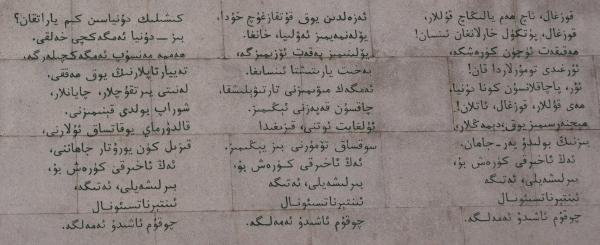 قوزغال، ئاچ ھەم يالىڭاچ قۇللار،
قوزغال، پۈتكۈل خارلانغان ئىنسان!
ھەقىقەت ئۈچۈن كۈرەشكە،
ئۆرغىدى تومۇرلاردا قان!
ئۆرۈ، پاچاقلانسۇن كونا دۇنيا،
ھەي قۇللار، قوزغال، ئاتلان!
ھېچنەرسىمىز يوق، دېمەڭلار،
بىزنىڭ بولىدۇ بەر-جاھان.
ئەڭ ئاخىرقى كۈرەش بۇ،
بىرلىشەيلى، ئەتىگە
ئىنتېرناتسىئونال
چوقۇم ئاشىدۇ ئەمەلگە.
ئەزەلدىن يوق قۇتقازغۇچ خۇدا،
يۆلەنمەيمىز ئەۋلىيا، خانغا.
يۆلىنىمىز پەقەت ئۆزىمىزگە،
بەخت يارىتىشتا ئىنسانغا.
ئەمگەك مىۋىسىنى تارتىۋېلىشقا،
چاقسۇن قەپەزنى ئېڭىمىز.
ئۇلغايت ئوتنى، قىزىغىدا
سوقساق تۆمۈرنى بىز يېڭىمىز.
ئەڭ ئاخىرقى كۈرەش بۇ،
بىرلىشەيلى، ئەتىگە
ئىنتېرناتسىئونال
چوقۇم ئاشىدۇ ئەمەلگە.
كىشىلىك دۇنياسىن كىم ياراتقان؟
بىز — دۇنيا ئەمگەكچى خەلقى.
ھەممە مەنسۇپ ئەمگەكچىلەرگە،
تەييارتاپلارنىڭ يوق ھەققى.
لەنىتى يىرتقۇچلار، چايانلار،
شوراپ يولدى قېنىمىزنى.
قالدۇرماي يوقاتساق ئۇلارنى،
قىزىل كۈن يورۇتار جاھاننى،
ئەڭ ئاخىرقى كۈرەش بۇ،
بىرلىشەيلى، ئەتىگە
ئىنتېرناتسىئونال
چوقۇم ئاشىدۇ ئەمەلگە.